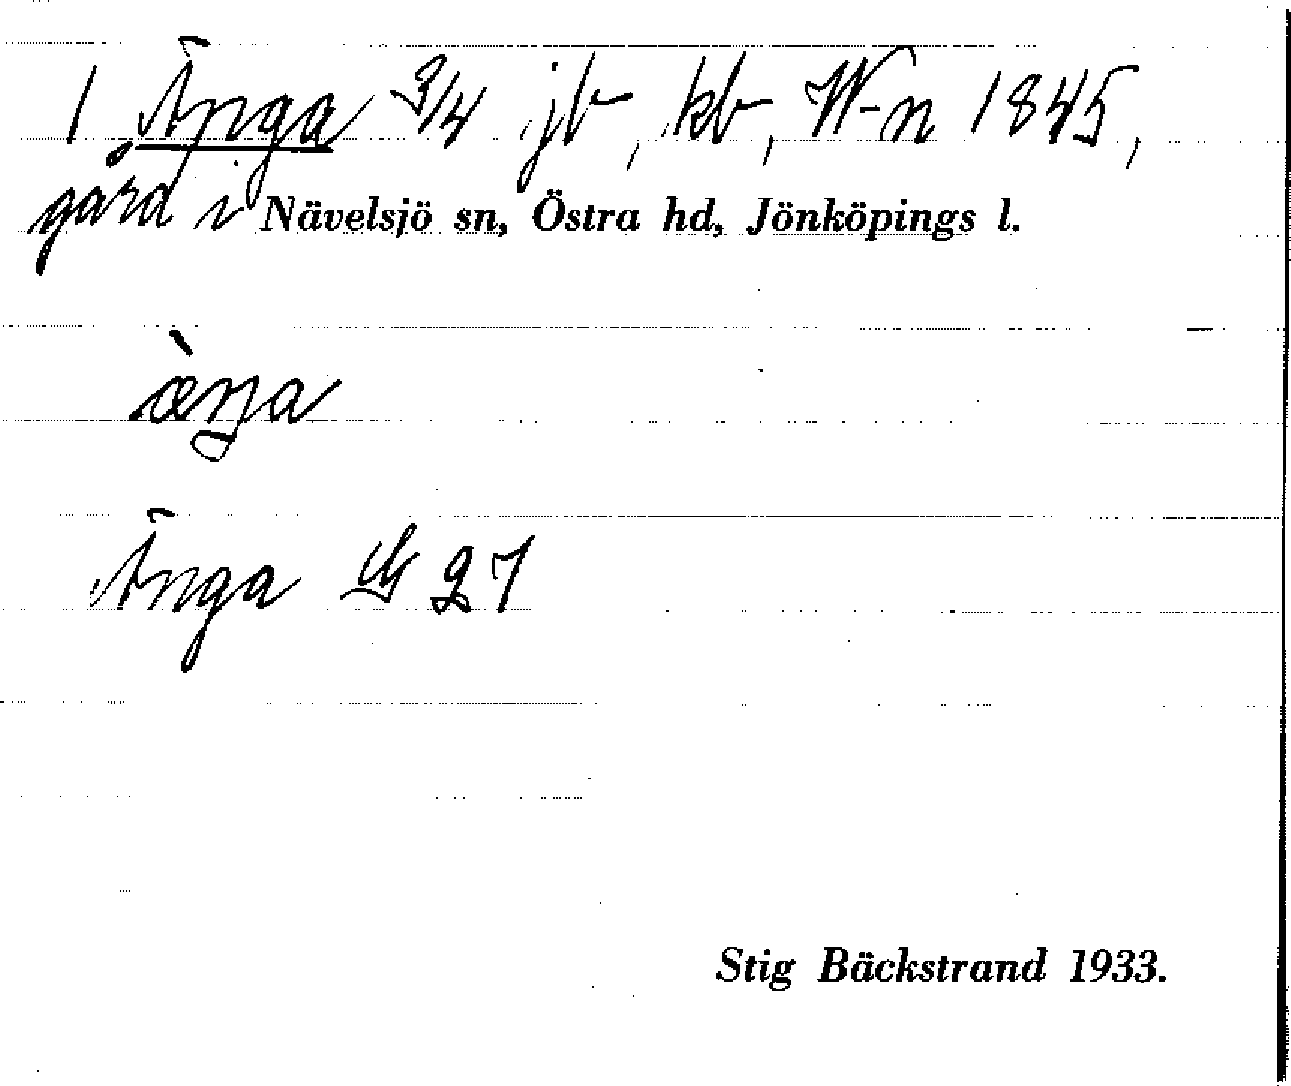 1 Änga 3/4 jb, kb, W-n 1845,
gård i Nävelsjö sn, Östra hd, Jönköpings l.
æ̀ŋa
Änga G 27
Stig Bäckstrand 1933.